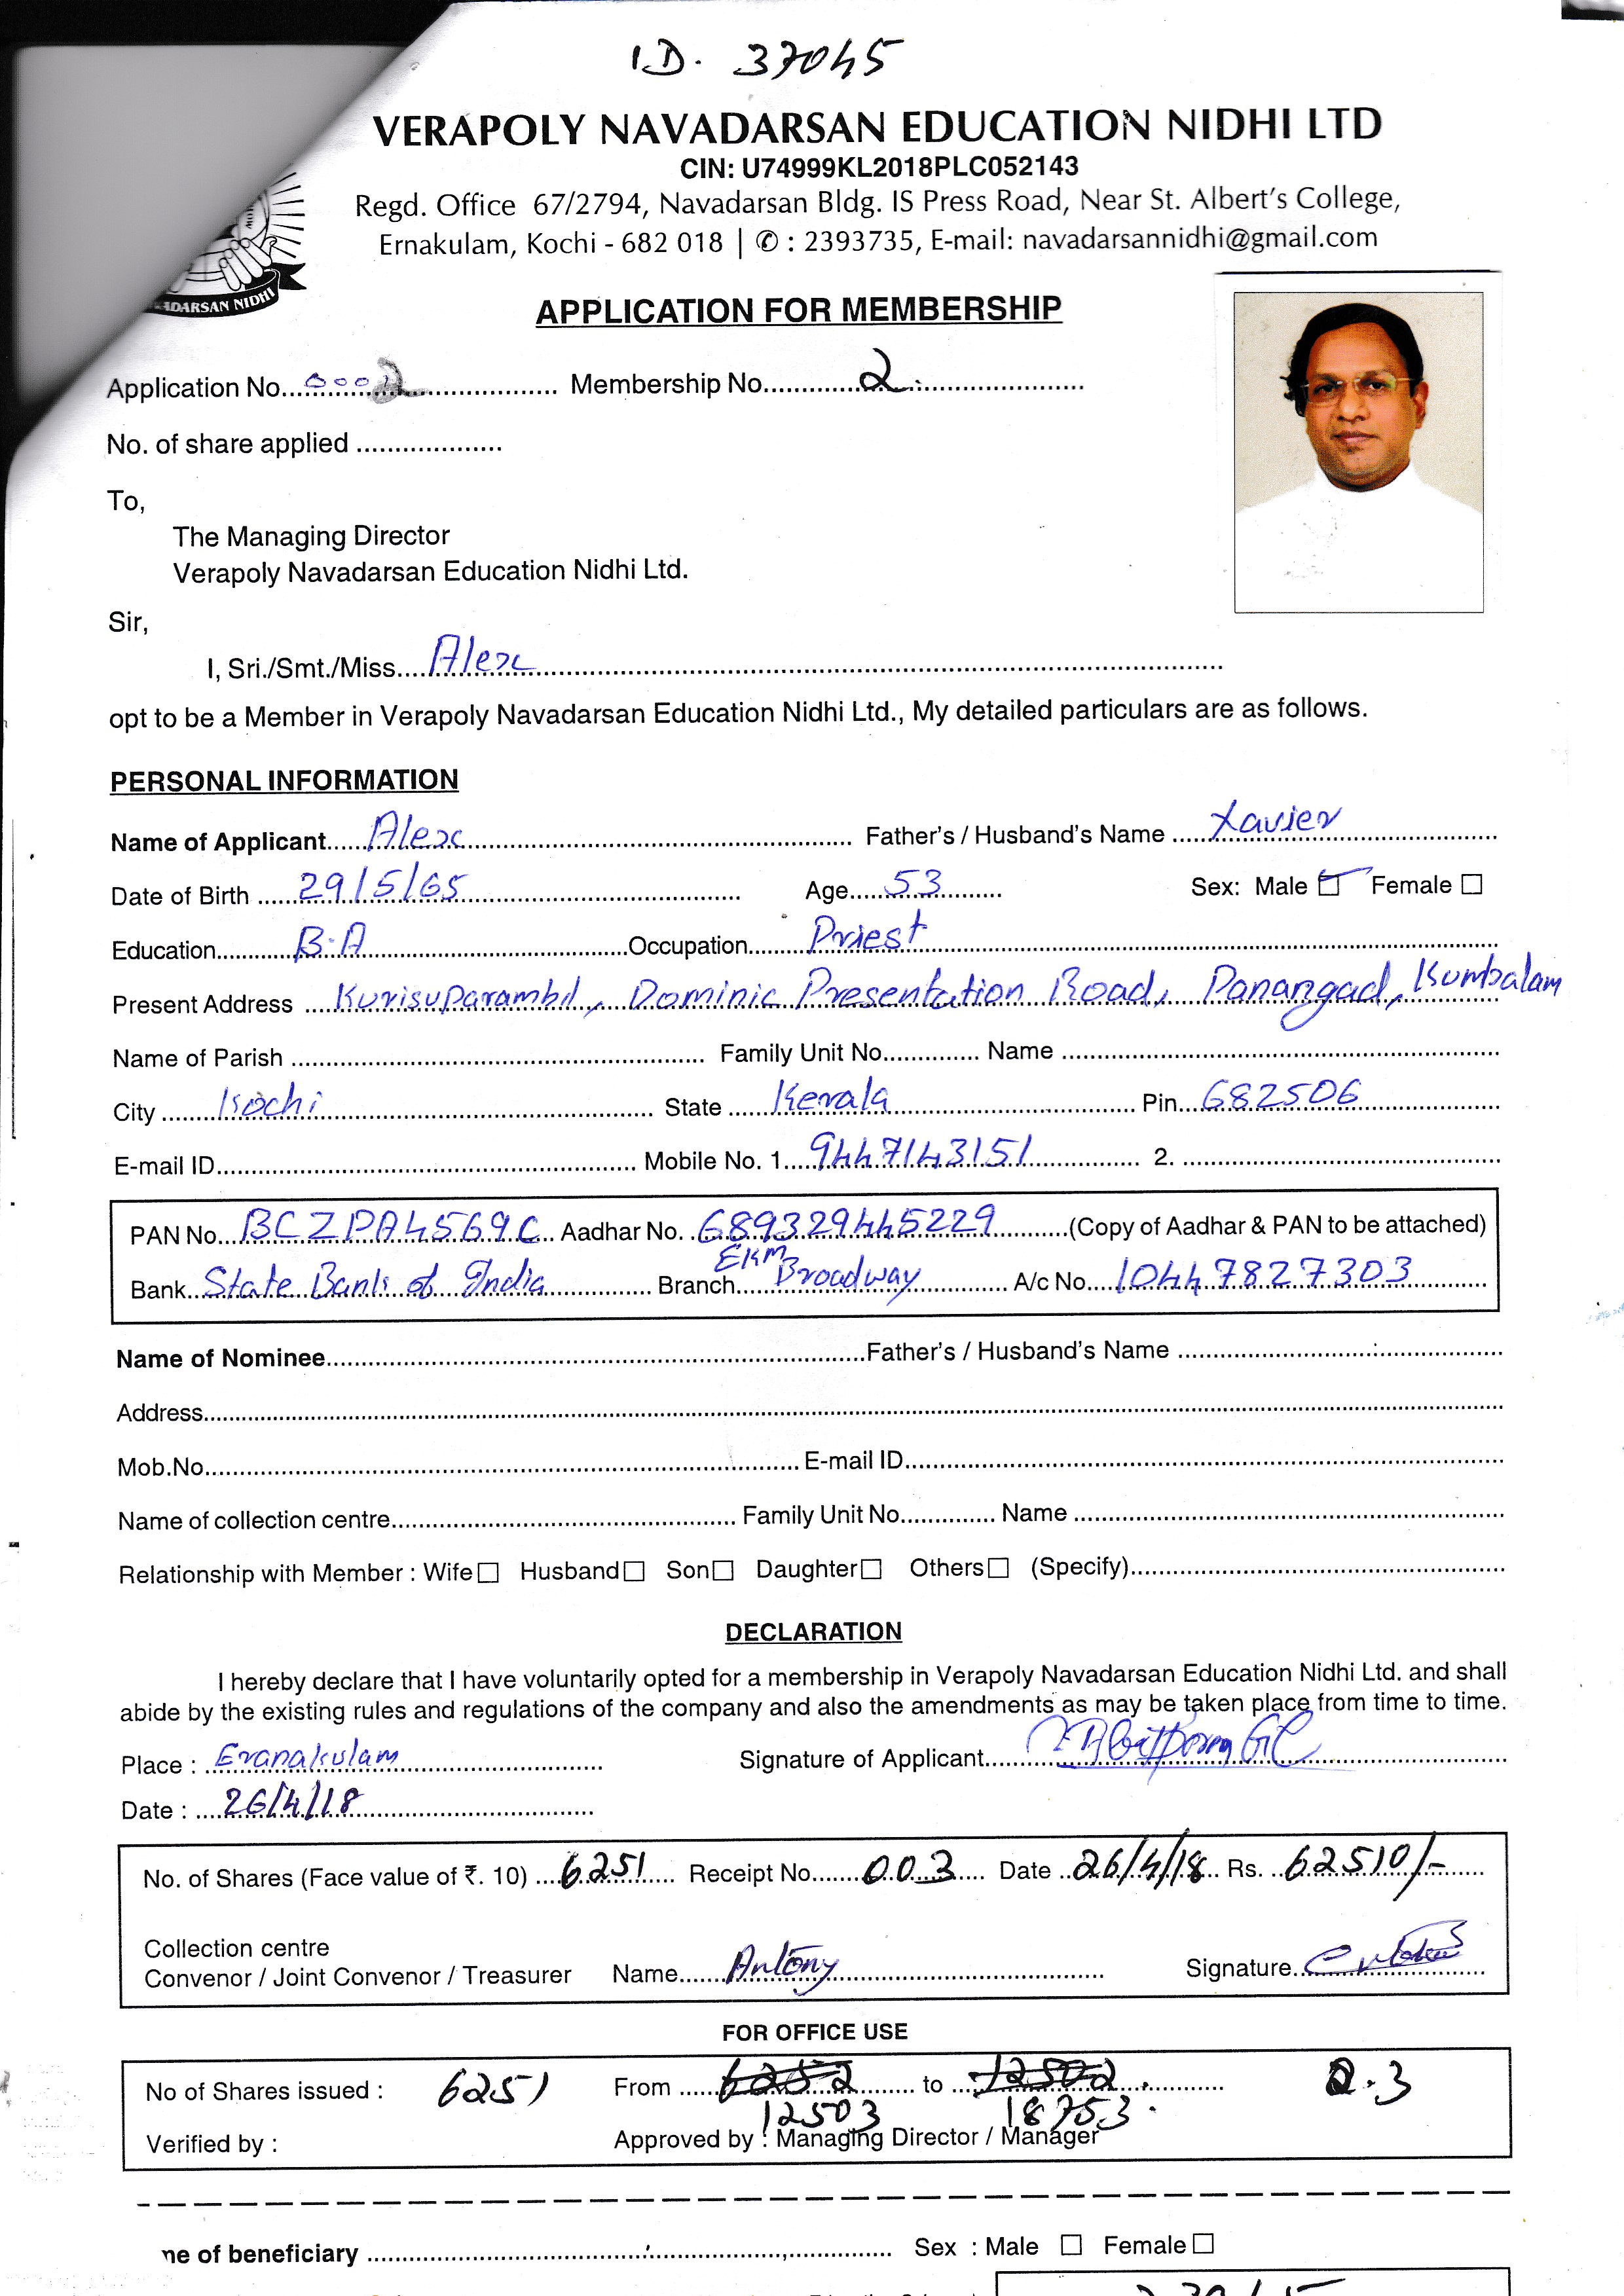 ID. 37045
VERAPOLY NAVADARSAN EDUCATION NIDHI LTD
CIN: U74999KL2018PLC052143
Regd. Office 67/2794, Navadarsan Bldg. IS Press Road, Near St. Albert's College,
Ernakulam, Kochi - 682 018 | ✆ : 2393735, E-mail: navadarsannidhi@gmail.com
ADARSAN NIDHI
APPLICATION FOR MEMBERSHIP
Application No. 0002 Membership No. 2
No. of share applied
To,
The Managing Director
Verapoly Navadarsan Education Nidhi Ltd.
Sir,
I, Sri./Smt./Miss. Alex
opt to be a Member in Verapoly Navadarsan Education Nidhi Ltd., My detailed particulars are as follows.
PERSONAL INFORMATION
Name of Applicant Alex Father's / Husband's Name Xavier
Date of Birth 29/5/65 Age 53 Sex: Male Female
Education B.A Occupation Priest
Present Address Kurisuparambil, Dominic Presentation Road, Panangad, Kumbalam
Name of Parish Family Unit No. Name
City Kochi State Kerala Pin 682506
E-mail ID Mobile No. 1. 9447143151 2.
PAN No. BCZPA4569C Aadhar No. 689329445229 (Copy of Aadhar & PAN to be attached)
Bank State Bank of India Branch EKM Broadway A/c No. 10447827303
Name of Nominee Father's / Husband's Name
Address
Mob.No. E-mail ID
Name of collection centre Family Unit No. Name
Relationship with Member : Wife Husband Son Daughter Others (Specify)
DECLARATION
I hereby declare that I have voluntarily opted for a membership in Verapoly Navadarsan Education Nidhi Ltd. and shall
abide by the existing rules and regulations of the company and also the amendments as may be taken place from time to time.
Place : Eranakulam Signature of Applicant
Date : 26/4/18
No. of Shares (Face value of ₹. 10) 6251 Receipt No. 003 Date 26/4/18 Rs. 62510/-
Collection centre
Convenor / Joint Convenor / Treasurer Name Antony Signature
FOR OFFICE USE
No of Shares issued : 6251 From 6252 to 12502 2.3
12503 18753.
Verified by : Approved by : Managing Director / Manager
ne of beneficiary Sex : Male Female